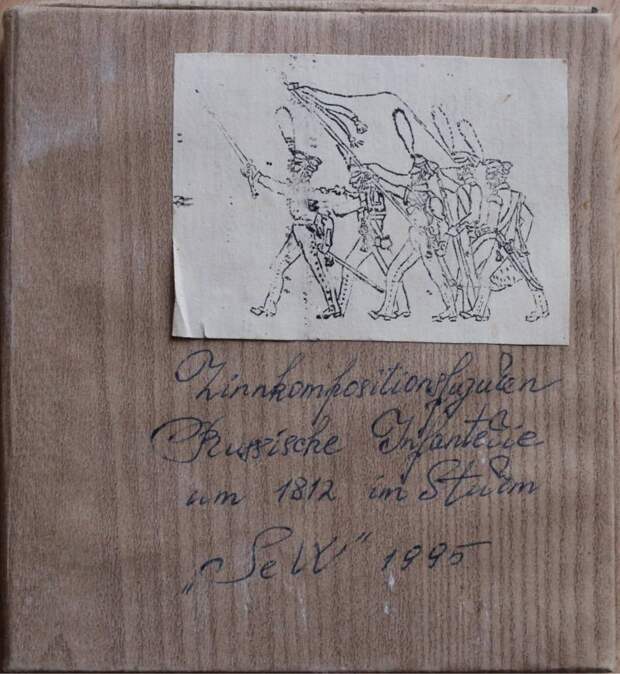 Zinnkompositionsfiguren
Russische Infanterie
um 1812 im Sturm
1995